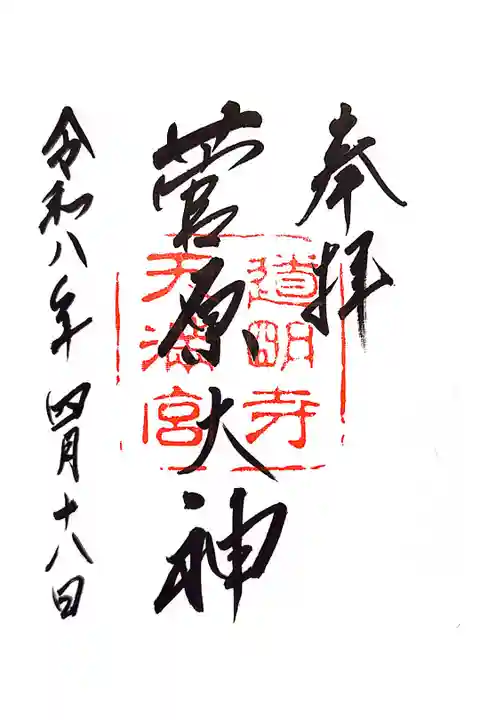 奉拝
菅原大神
道明寺
天満宮
令和八年四月十八日